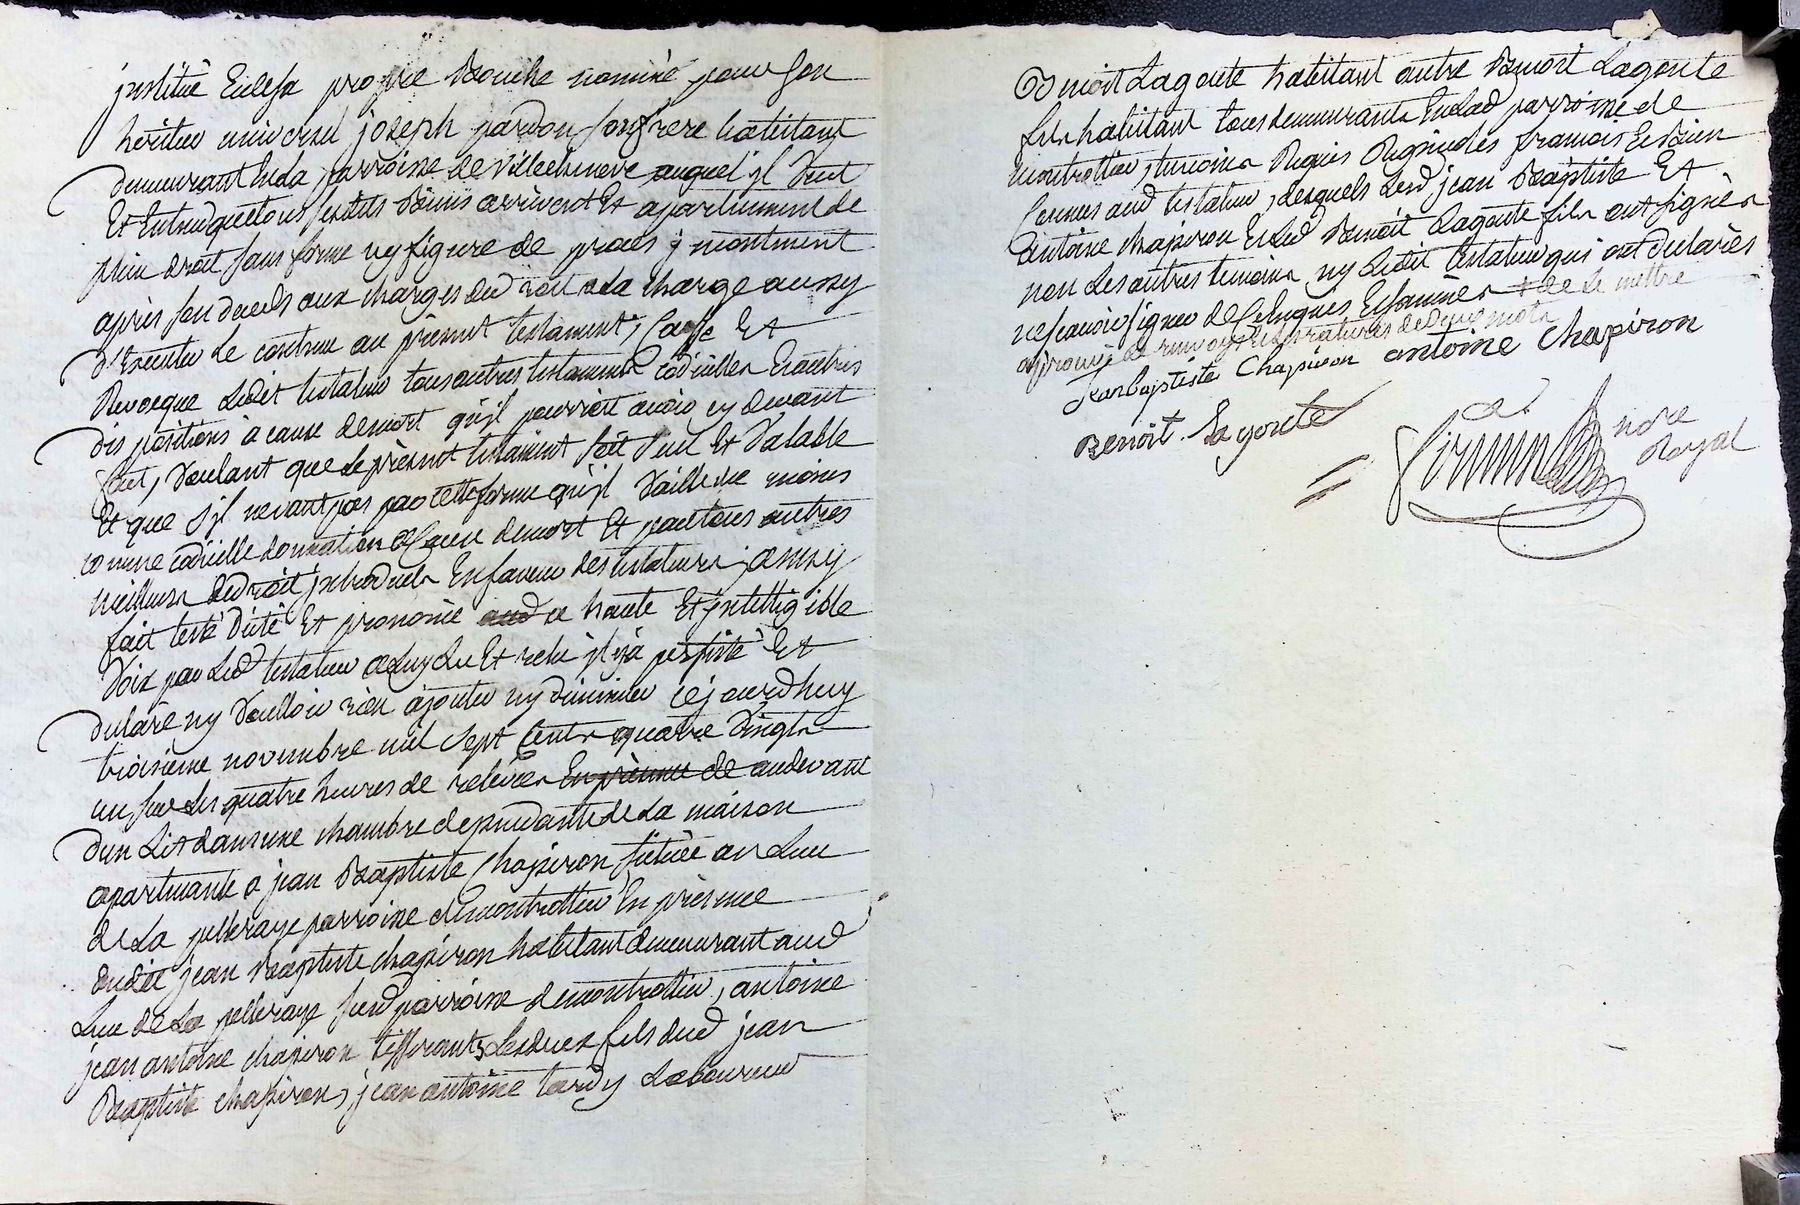 institué et de sa propre bouche nommé pour son
héritier universel joseph pardon son frere habittant
demeurant en la parroisse de villecheneve auquel il veut
Et entend que tous sesdits biens arrivent Et apartiennent de
plein droit sans forme ny figure de procès y montment
après son decès aux charges du droit a la charge aussy
d'Executer le contenu au présent testament, Casse Et
Revocque Ledit testateur tous autres testaments codicilles Et autres
dispositions a cause de mort qu'il pourroit avoir cy devant
fait, voulant que le présent testament soit seul Et valable
Et que s'il ne vaut pas par cette forme qu'il vaille du moins
comme codicille donnation a Cause de mort Et par tous autres
meilleurs de droit introduits En faveur des testateurs, ainsy
fait testé dicté Et prononcé aud a haute Et intelligible
voix par Led testateur a luy Lu Et relu il y a persisté Et
déclaré ny voulloir rien ajouter ny diminuer cejourdhuy
troisieme novembre mil sept Cents quatre vingts
un sur Les quatre heures de relevées En présence de audevant
dun Lit dans une chambre dependante de La maison
apartenante a jean Baptiste Chapiron située au Lieu
de La pelleraye parroisse de montrottier En présence
dudit jean Baptiste chapiron habitant demeurant aud
Lieu de La pelleraye sud parroisse de montrottier, antoine
jean antoine chapiron tifferants Lesdeux fils dud jean
Baptiste chapiron, jean antoine tardy Laboureur
Benoit Lagoute habitant autre Benoit Lagoute
fils habitant tous demeurants En Lad parroisse de
montrottier, temoins Requis Et bien
Connus aud testateur, desquels Lesd jean Baptiste Et
antoine chapiron Et Led Benoit Lagoute fils ont signés
non Les autres temoins ny Ledit testateur qui ont déclarés
ne scavoir signer de Ce Enquis Et sommés de Le mettre
approuvé Le renvoy Et Les ratures de deux mots
Jean baptiste Chapiron antoine Chapiron
Benoit Lagoute
nore
Royal